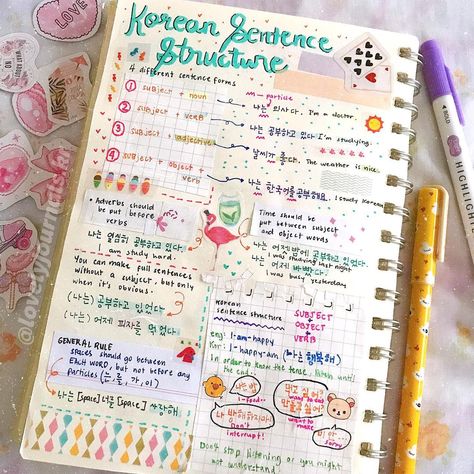 Korean Sentence
Structure
4 different sentence forms
① subject + noun
② subject + verb
③ subject + adjective
④ subject + object +
verb
particle
나는 의사다. I'm a doctor.
나는 공부하고 있다 I'm studying.
날씨가 좋다. The weather is nice.
나는 한국어를 공부해요. I study Korean
• Adverbs should
be put before
verbs
나는 열심히 공부하고 있다.
I am study hard.
Time should be
put between subject
and object words
나는 어젯밤에 공부하고 있었다.
I was studying last night
나는 어제 바빴다.
I was busy yesterday
You can make full sentences
without a subject, but only
when it's obvious.
(나는) 공부하고 있었다
(나는) 어제 피자를 먹었다.
GENERAL RULE
spaces should go between
EACH WORD, but not before any
particles (는, 를, 가, 이)
나는 [space] 너를 [space] 사랑해
Korean
sentence structure
SUBJECT
OBJECT
VERB
eng: I-am-happy
Kor: I-happy-am (나는 행복해)
In order to know the tense, listen until
the end..
나는 밥
I-food..
나 방해하지마!
Don't
interrupt!
먹고 싶어!
want to eat
만들고 싶어!
want to
make
미안...
sorry
Don't stop listening or you might
not understand!
LOVE
HIGHLIGHT